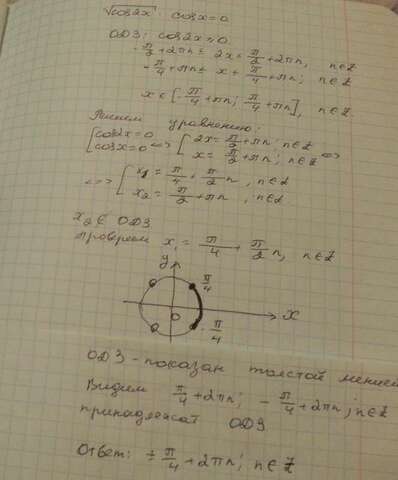 √cos2x · cosx=0
ОДЗ: cos2x≥0
-π/2+2πn≤ 2x≤ π/2+2πn, n∈Z
-π/4+πn≤ x≤ π/4+πn; n∈Z
x∈[-π/4+πn; π/4+πn], n∈Z
Решаем уравнению:
[cos2x=0 [cosx=0 <=> [2x= π/2+πn; n∈Z [x= π/2+πn; n∈Z <=>
<=> [x₁= π/4+ π/2 n, n∈Z [x₂= π/2+πn, n∈Z
x₂∉ ОДЗ
Проверяем x₁= π/4 + π/2 n, n∈Z
y
π/4
0
x
-π/4
ОДЗ-показан толстой линией
Видим π/4+2πn; -π/4+2πn; n∈Z
принадлежат ОДЗ
Ответ: ±π/4+2πn; n∈Z